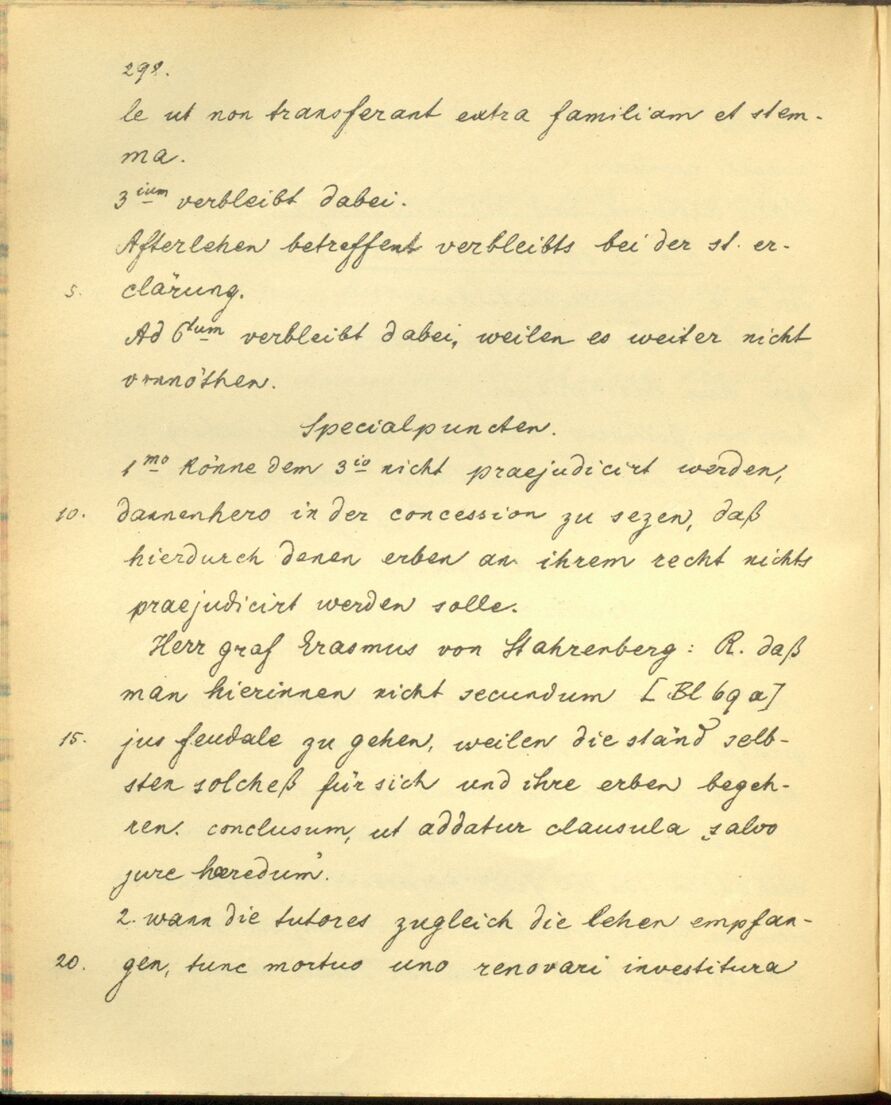 298.
le ut non transferant extra familiam et stem-
ma.
3ium verbleibt dabei.
Afterlehen betreffent verbleibts bei der st. er-
5. clärung.
Ad 6tum verbleibt dabei, weilen es weiter nicht
vonnöthen.
Specialpuncten.
1mo könne dem 3io nicht praejudicirt werden,
10. dannenhero in der concession zu sezen, daß
hierdurch denen erben an ihrem recht nichts
praejudicirt werden solle.
Herr graf Erasmus von Stahrenberg: R. daß
man hierinnen nicht secundum [Bl 69 a]
15. jus feudale zu gehen, weilen die ständ selb-
sten solcheß für sich und ihre erben begeh-
ren. conclusum, ut addatur clausula „salvo
jure hæredum".
2. wann die tutores zugleich die lehen empfan-
20. gen, tunc mortuo uno renovari investitura